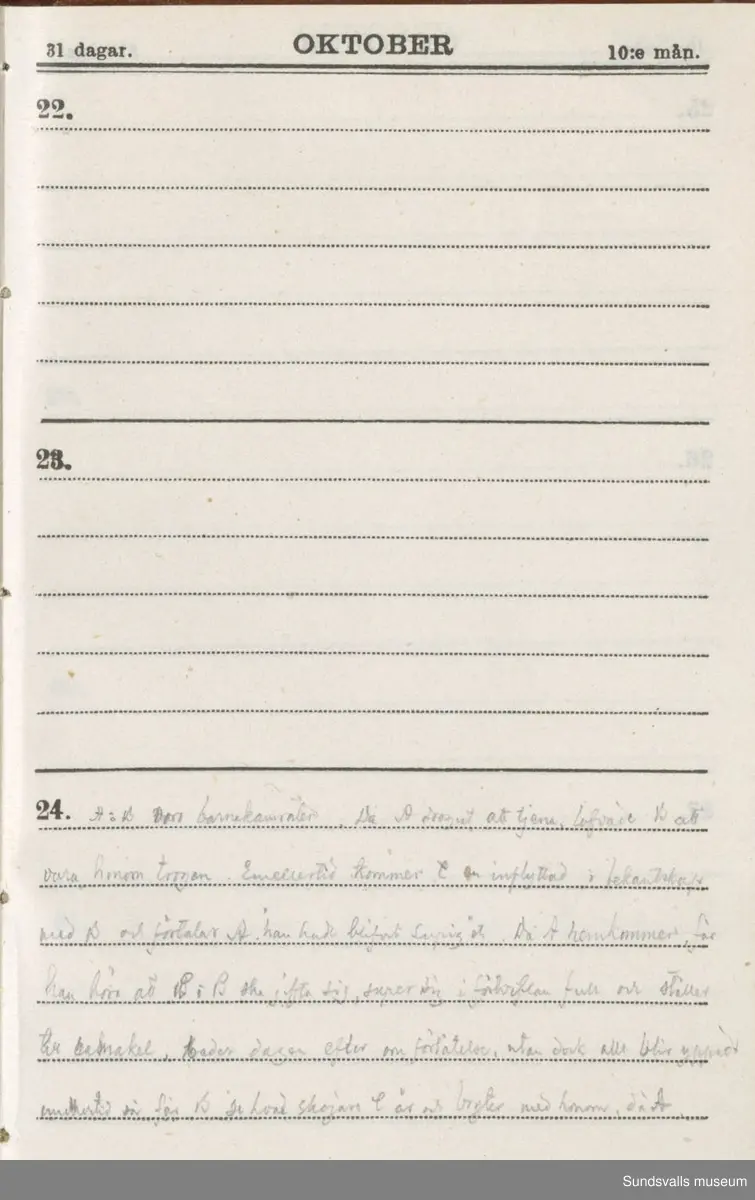 31 dagar. OKTOBER 10:e mån.
22.
23.
24. A & B voro barnkamrater. Då A att tjena, lofvade B att
vara honom trogen. Emellertid kommer C en inflyttad i bekantskap
med B och förtalar A. han hade blifvit supig etc. Då A hemkommer, får
han höra att C & B ska gifta sig, super sig i förtviflan full och ställer
till spektakel, beder dagen efter om förlåtelse, utan dock att blir
emellertid får B se hvad skojare C är och bryter med honom, då A
Sundsvalls museum